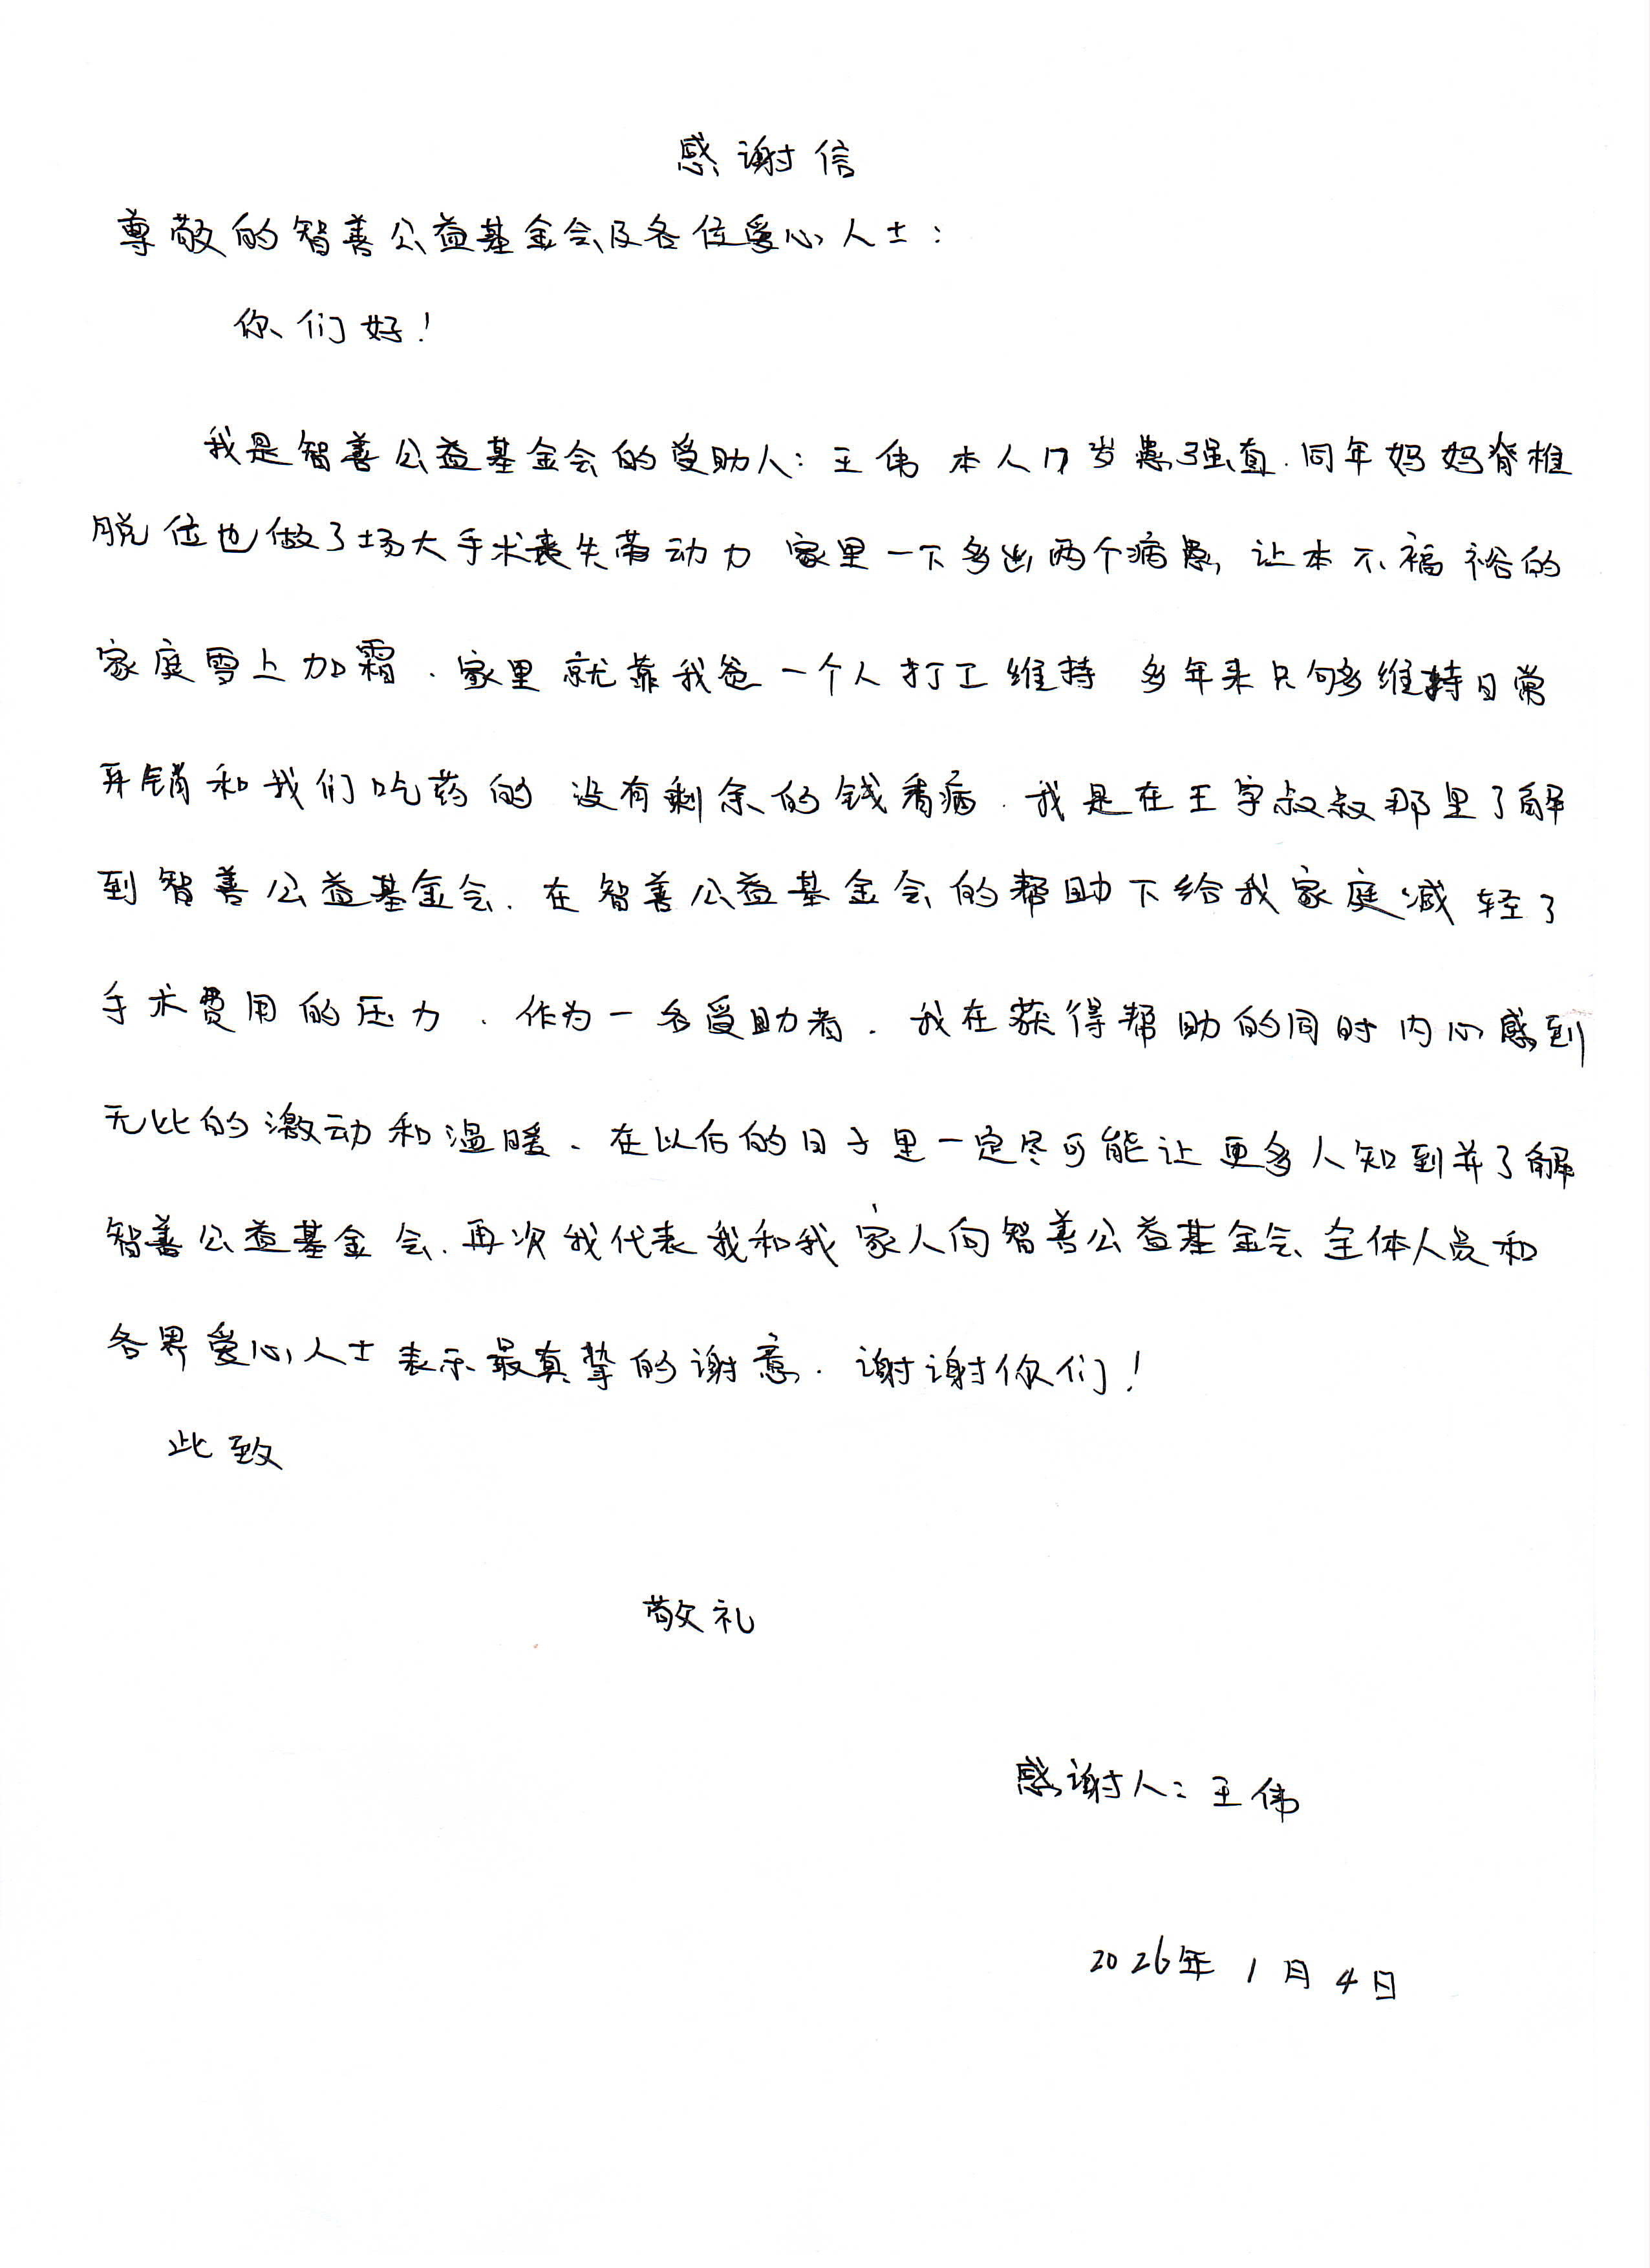 感谢信
尊敬的智善公益基金会及各位爱心人士：
你们好！
我是智善公益基金会的受助人：王伟 本人17岁患强直.同年妈妈脊椎
脱位也做了场大手术丧失劳动力 家里一下多出两个病患 让本不福裕的
家庭雪上加霜.家里就靠我爸一个人打工维持 多年来只够维持日常
开销和我们吃药的 没有剩余的钱看病.我是在王字叔叔那里了解
到智善公益基金会.在智善公益基金会的帮助下给我家庭减轻了
手术费用的压力.作为一名受助者.我在获得帮助的同时内心感到
无比的激动和温暖、在以后的日子里一定尽可能让更多人知到并了解
智善公益基金会.再次我代表我和我家人向智善公益基金会全体人员和
各界爱心人士表示最真挚的谢意.谢谢你们！
此致
敬礼
感谢人：王伟
2026年1月4日